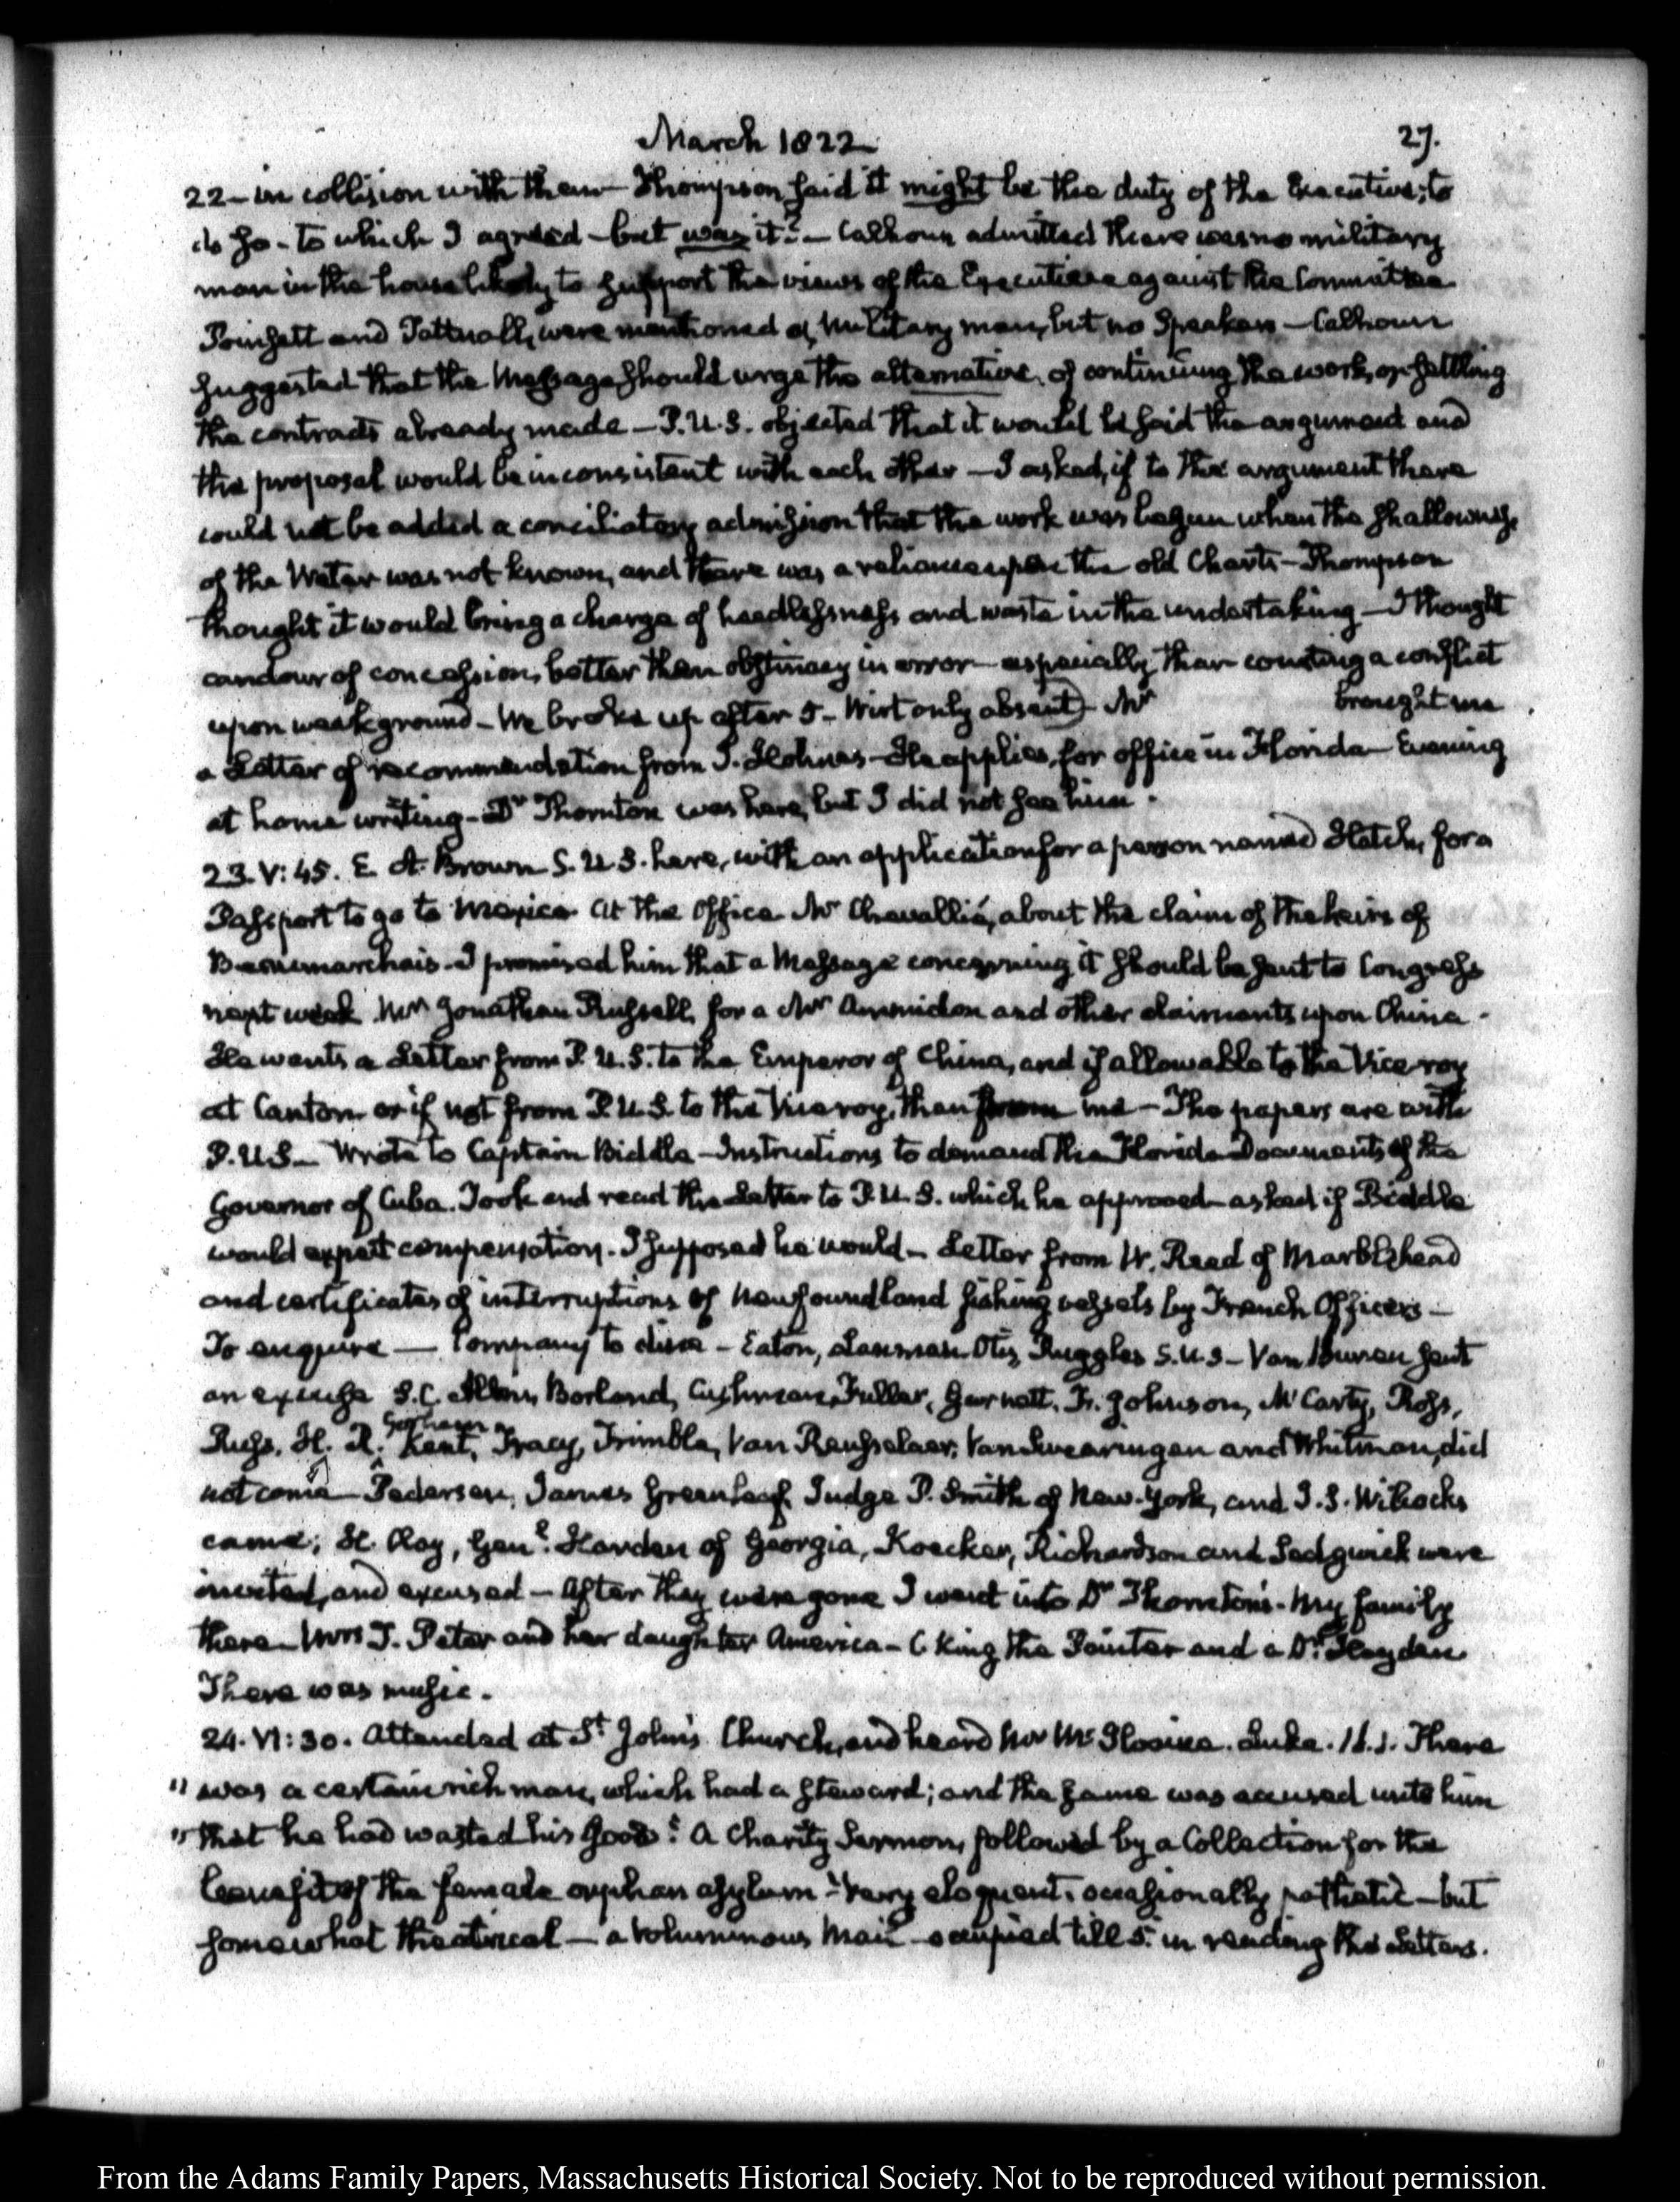 March 1822
27.
22 – in collision with them – Thompson said it might be the duty of the Executive, to
do so – to which I agreed – but was it? – Calhoun admitted there was no military
man in the house likely to support the views of the Executive against the Committee
Poinsett and Tattnall, were mentioned as Military men, but no Speakers – Calhoun
suggested that the Message should urge the alternative, of continuing the work, or settling
the contracts already made – P.U.S. objected that it would be said the argument and
the proposal would be inconsistent with each other – I asked, if to the argument there
could not be added a conciliatory admission that the work was begun when the shallowness
of the Water was not known, and there was a reliance upon the old Charts – Thompson
thought it would bring a charge of heedlessness and waste in the undertaking – I thought
candour of concession, better than obstinacy in error – especially than courting a conflict
upon weak ground – We broke up after 5 – Wirt only absent) Mr brought me
a Letter of recommendation from J. Holmes – He applies, for office in Florida – Evening
at home writing – Dr Thornton was here, but I did not see him.
23. V:45. E. A. Brown S.U.S. here, with an application for a person named Hatch, for a
Passport to go to Mexico. At the Office Mr Chevallié, about the claim of the heirs of
Beaumarchais – I promised him that a Message concerning it should be sent to Congress
next week. Jonathan Russell, for a Mr Ammidon and other claimants upon China –
He wants a Letter from P.U.S. to the Emperor of China, and if allowable to the Vice-roy
at Canton – or if not from P.U.S. to the Viceroy, then from me – The papers are with
P.U.S – Wrote to Captain Biddle – Instructions to demand the Florida Documents of the
Governor of Cuba. Took and read the Letter to P.U.S. which he approved – asked if Biddle
would expect compensation. I supposed he would – Letter from W. Reed of Marblehead
and certificates of interruptions of Newfoundland fishing vessels by French Officers –
To enquire — Company to dine – Eaton, Lanman, Otis, Ruggles S.U.S – Van Buren sent
an excuse S.C. Allen, Borland, Cushman, Fuller, Gurnett, Fr. Johnson, McCarty, Ross,
Gorham
Russ, H. R. Kent, Tracy, Trimble, Van Rensselaer, Van Swearingen and Whitman, did
not come Pedersen, James Greenleaf, Judge P. Smith of New-York, and J.S. Wilcocks
came; H. Clay, Genl. Harden of Georgia, Koecker, Richardson and Sedgwick were
invited, and excused – After they were gone I went into Dr Thornton's – My family
there – Mrs T. Peter and her daughter America – C King the Painter and a Dr. Hayden.
There was music.
24. VI:30. Attended at St John's Church, and heard Mr McIlvaine. Luke. 16.1. There
" was a certain rich man, which had a steward; and the same was accused unto him
" that he had wasted his goods: A Charity Sermon, followed by a Collection for the
benefit of the female orphan asylum – Very eloquent, occasionally pathetic – but
somewhat theatrical – a voluminous Mail – occupied till 5. in reading the Letters.
From the Adams Family Papers, Massachusetts Historical Society. Not to be reproduced without permission.